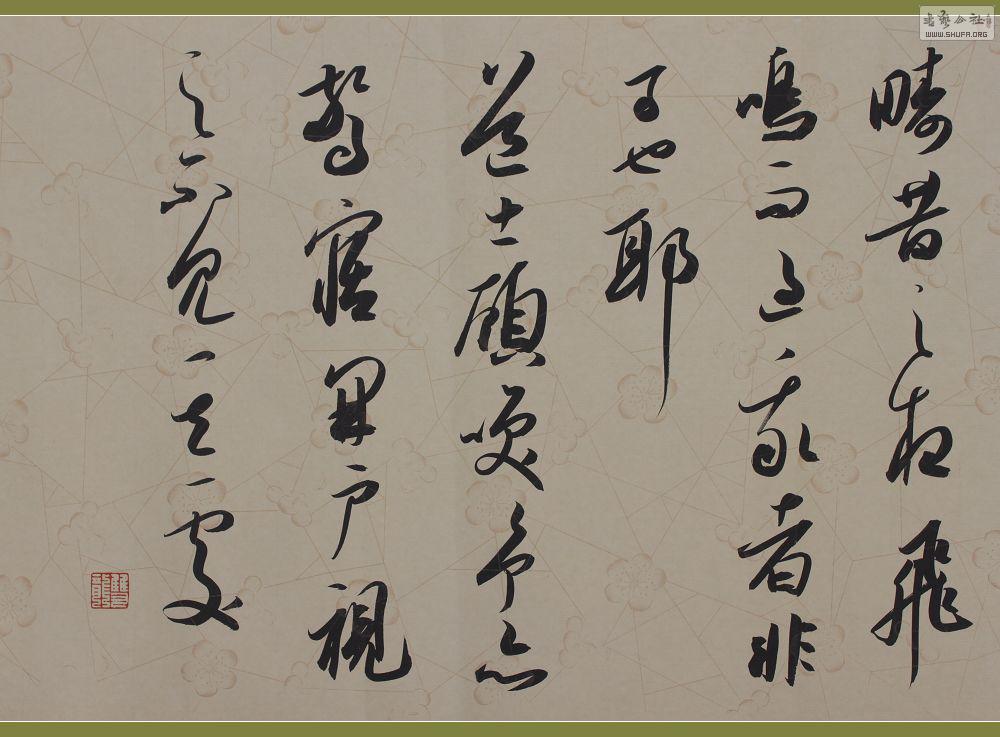 疇昔之夜飛
鳴而過我者非
子也耶
道士顧笑予亦
驚寤開户視
之不見其處
書藝公社
WWW.SHUFA.ORG